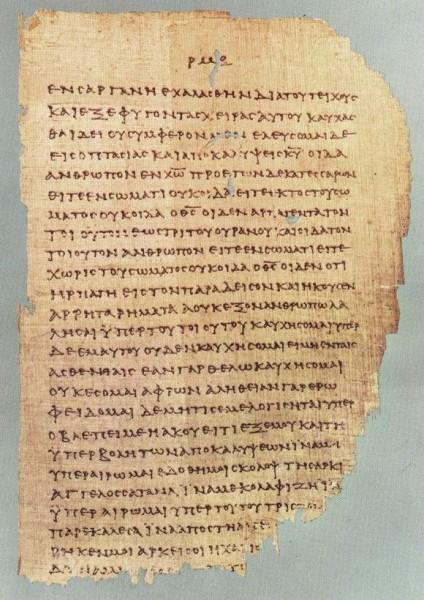 ΡΜΘ
ΕΝϹΑΡΓΑΝΗΕΧΑΛΑϹΘΗΝΔΙΑΤΟΥΤΕΙΧΟΥϹ
ΚΑΙΕΞΕΦΥΓΟΝΤΑϹΧΕΙΡΑϹΑΥΤΟΥΚΑΥΧΑϹ
ΘΑΙΔΕΙΟΥϹΥΜΦΕΡΟΝΜΕΝΕΛΕΥϹΟΜΑΙΔΕ
ΕΙϹΟΠΤΑϹΙΑϹΚΑΙΑΠΟΚΑΛΥΨΕΙϹΚ̅Υ̅ΟΙΔΑ
ΑΝΘΡΩΠΟΝΕΝΧ̅Ω̅ΠΡΟΕΤΩΝΔΕΚΑΤΕϹϹΑΡΩΝ
ΕΙΤΕΕΝϹΩΜΑΤΙΟΥΚΟΙΔΑΕΙΤΕΕΚΤΟϹΤΟΥϹΩ
ΜΑΤΟϹΟΥΚΟΙΔΑΟΘ̅Ϲ̅ΟΙΔΕΝΑΡΠΑΓΕΝΤΑΤΟΝ
ΤΟΙΟΥΤΟΝΕΩϹΤΡΙΤΟΥΟΥΡΑΝΟΥΚΑΙΟΙΔΑΤΟΝ
ΤΟΙΟΥΤΟΝΑΝΘΡΩΠΟΝΕΙΤΕΕΝϹΩΜΑΤΙΕΙΤΕ
ΧΩΡΙϹΤΟΥϹΩΜΑΤΟϹΟΥΚΟΙΔΑΟΘ̅Ϲ̅ΟΙΔΕΝΟΤΙ
ΗΡΠΑΓΗΕΙϹΤΟΝΠΑΡΑΔΕΙϹΟΝΚΑΙΗΚΟΥϹΕΝ
ΑΡΡΗΤΑΡΗΜΑΤΑΑΟΥΚΕΞΟΝΑΝΘΡΩΠΩΛΑ
ΛΗϹΑΙΫΠΕΡΤΟΥΤΟΙΟΥΤΟΥΚΑΥΧΗϹΟΜΑΙΫΠΕΡ
ΔΕΕΜΑΥΤΟΥΟΥΔΕΝΚΑΥΧΗϹΟΜΑΙΕΙΜΗΕΝΤΑΙϹ
ΑϹΘΕΝΕΙΑΙϹΕΑΝΓΑΡΘΕΛΩΚΑΥΧΗϹΟΜΑΙ
ΟΥΚΕϹΟΜΑΙΑΦΡΩΝΑΛΗΘΕΙΑΝΓΑΡΕΡΩ
ΦΕΙΔΟΜΑΙΔΕΜΗΤΙϹΕΜΕΛΟΓΙϹΗΤΑΙΫΠΕΡ
ΟΒΛΕΠΕΙΜΕΗΑΚΟΥΕΙΤΙΕΞΕΜΟΥΚΑΙΤΗ
ΫΠΕΡΒΟΛΗΤΩΝΑΠΟΚΑΛΥΨΕΩΝΪΝΑΜΗ
ΫΠΕΡΑΙΡΩΜΑΙΕΔΟΘΗΜΟΙϹΚΟΛΟΨΤΗϹΑΡΚΙ
ΑΓΓΕΛΟϹϹΑΤΑΝΑΪΝΑΜΕΚΟΛΑΦΙΖΗΪΝ
ΫΠΕΡΑΙΡΩΜΑΙΫΠΕΡΤΟΥΤΟΥΤΡΙϹ
ΠΑΡΕΚΑΛΕϹΑΪΝΑΑΠΟϹΤΗ
ΡΗΚΕΝΜΟΙΑΡΚΕΙϹΟΙΗΧΑΡΙϹ